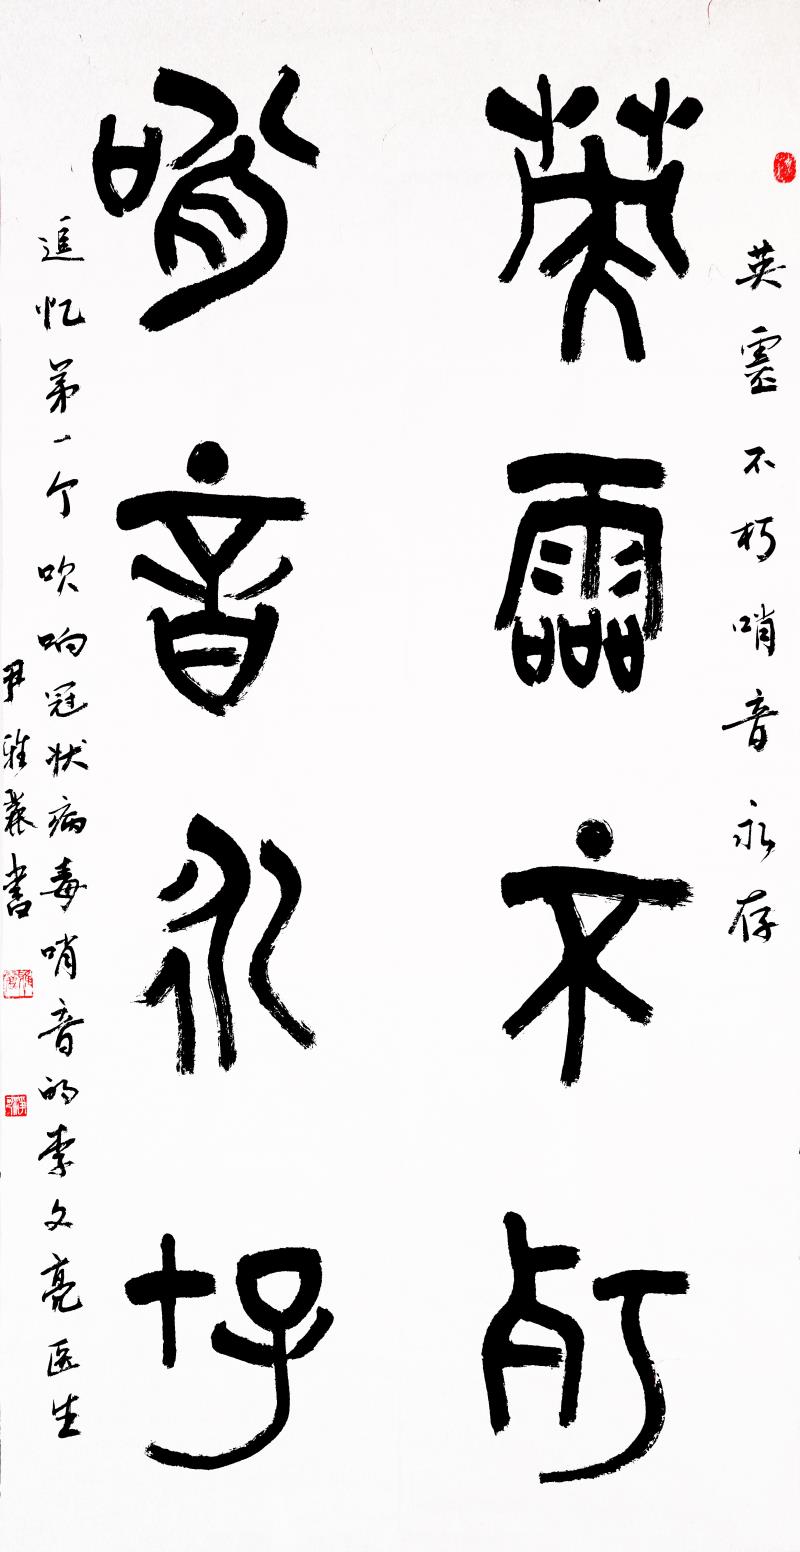 英靈不朽
哨音永存
英靈不朽哨音永存
追忆第一个吹响冠状病毒哨音的李文亮医生
尹雅
書